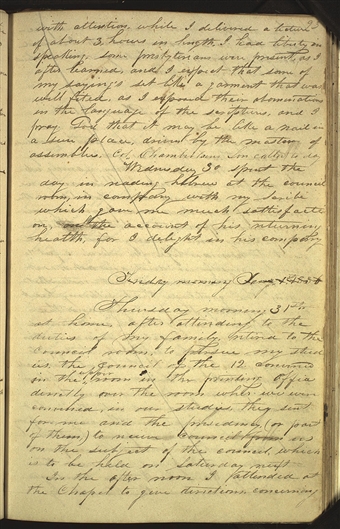 with attention, while I delivered a lecture
of about 3, hours in length I had liberty in
speaking, some presbyterians were present, as I
after learned, and I expect that some of
my sayings set like a garment that was
well fited, as I exposed their abominations
in the language of the scriptures, and I
pray God that it may be like a nail in
a sure place, driven by the master of
assemblies,
Wednesday 30 spent the
day in reading hebrew at the council
room, in company with my scribe
which gave me much satisfacti
on, on account of his returning
health, for I delight in his company
Thursday morning 31st
at home, after attending to the
duties of my family, retired to the
council room, to pursue my studi
es, the council of the 12 convened
in the upper room in the printing office
directly over the room where we were
convened, in our studies, they sent
for me and the presidency, (or part
of them,) to receive council from us
on the subject of the council, which
is to be held on Saturday next
In the after noon I attended at
the Chapel to give directions concerning